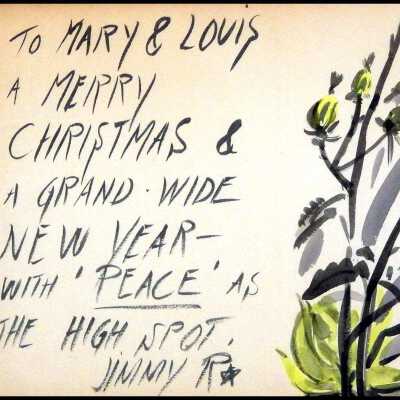 TO MARY & LOUIS
A MERRY
CHRISTMAS &
A GRAND · WIDE
NEW YEAR—
WITH 'PEACE' AS
THE HIGH SPOT.
JIMMY R